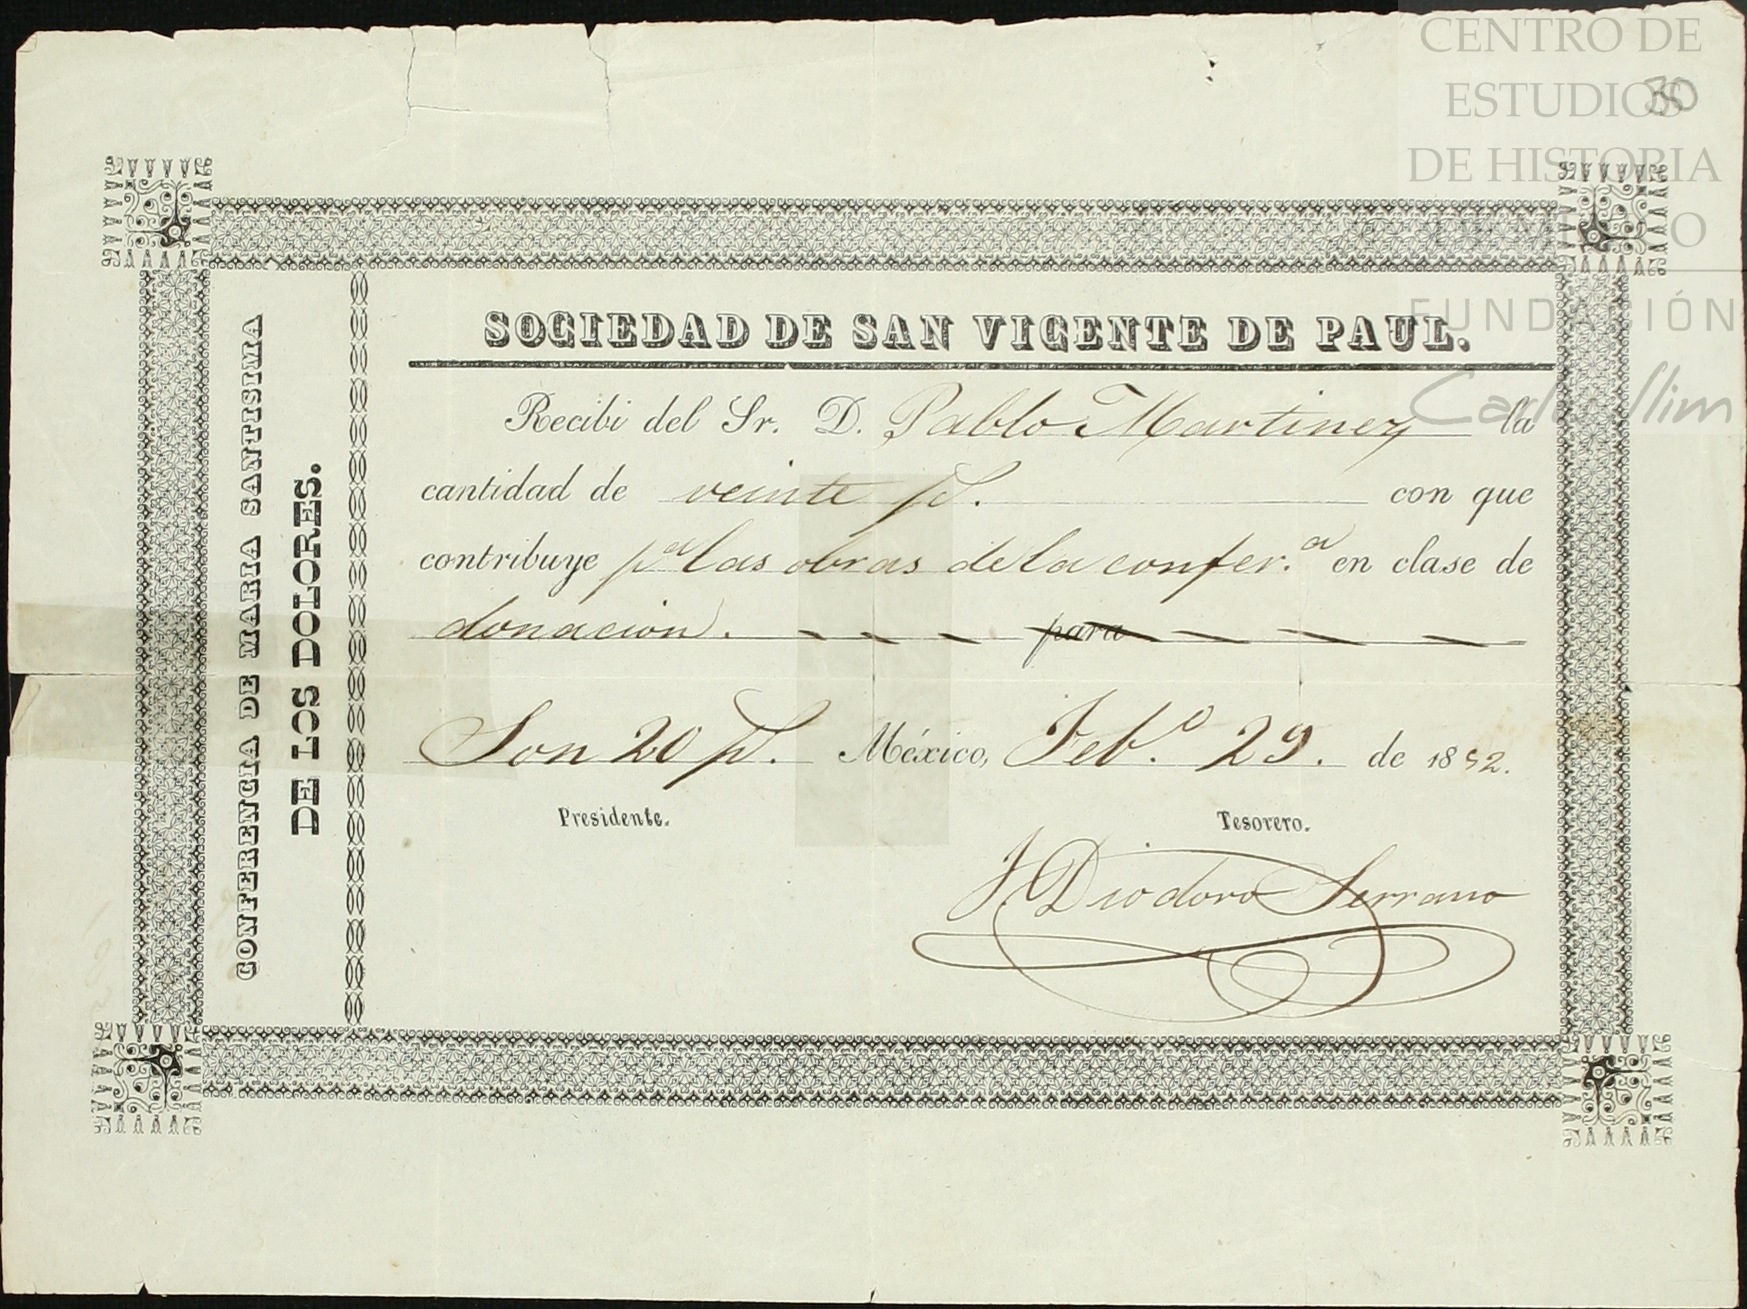 CENTRO DE
ESTUDIOS
DE HISTORIA
DE MÉXICO
FUNDACIÓN
Carlos Slim
30
CONFERENCIA DE MARIA SANTISIMA
DE LOS DOLORES.
SOCIEDAD DE SAN VICENTE DE PAUL.
Recibi del Sr. D. Pablo Martinez la
cantidad de veinte ps. con que
contribuye pa las obras de la confer.a en clase de
donacion. para
Son 20 ps. México, Feb.o 29. de 1852.
Presidente. Tesorero.
J. Diodoro Serrano